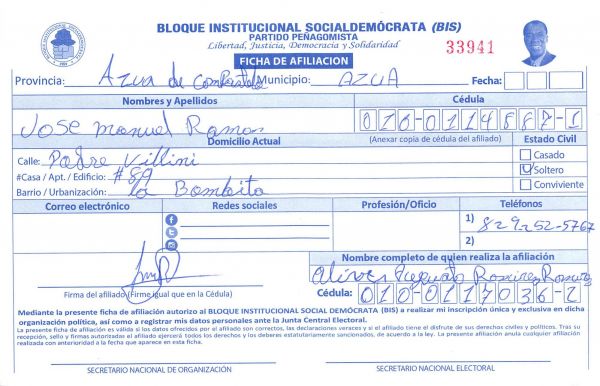 BLOQUE INSTITUCIONAL SOCIALDEMÓCRATA (BIS)
PARTIDO PEÑAGOMISTA
Libertad, Justicia, Democracia y Solidaridad
33941
FICHA DE AFILIACION
Provincia: Azua de Compostela Municipio: AZUA Fecha:
Nombres y Apellidos Cédula
Jose manuel Ramon 010-0114887-1
Domicilio Actual (Anexar copia de cédula del afiliado) Estado Civil
Calle: Padre Villini Casado
#Casa / Apt. / Edificio: #89 Soltero
Barrio / Urbanización: la Bombita Conviviente
Correo electrónico Redes sociales Profesión/Oficio Teléfonos
1) 829252-5767
2)
Nombre completo de quien realiza la afiliación
Ramirez
Firma del afiliado (Firme igual que en la Cédula) Cédula: 010-0117036-2
Mediante la presente ficha de afiliación autorizo al BLOQUE INSTITUCIONAL SOCIAL DEMÓCRATA (BIS) a realizar mi inscripción única y exclusiva en dicha
organización política, así como a registrar mis datos personales ante la Junta Central Electoral.
La presente ficha de afiliación es válida si los datos ofrecidos por el afiliado son correctos, las declaraciones veraces y si el afiliado tiene el disfrute de sus derechos civiles y políticos. Tras su
recepción, sello y firmas autorizadas el afiliado ejercerá todos los derechos y los deberes estatutariamente sancionados, de acuerdo a la ley. La presente afiliación anula cualquier afiliación
realizada con anterioridad a la fecha que aparece en esta ficha.
SECRETARIO NACIONAL DE ORGANIZACIÓN SECRETARIO NACIONAL ELECTORAL